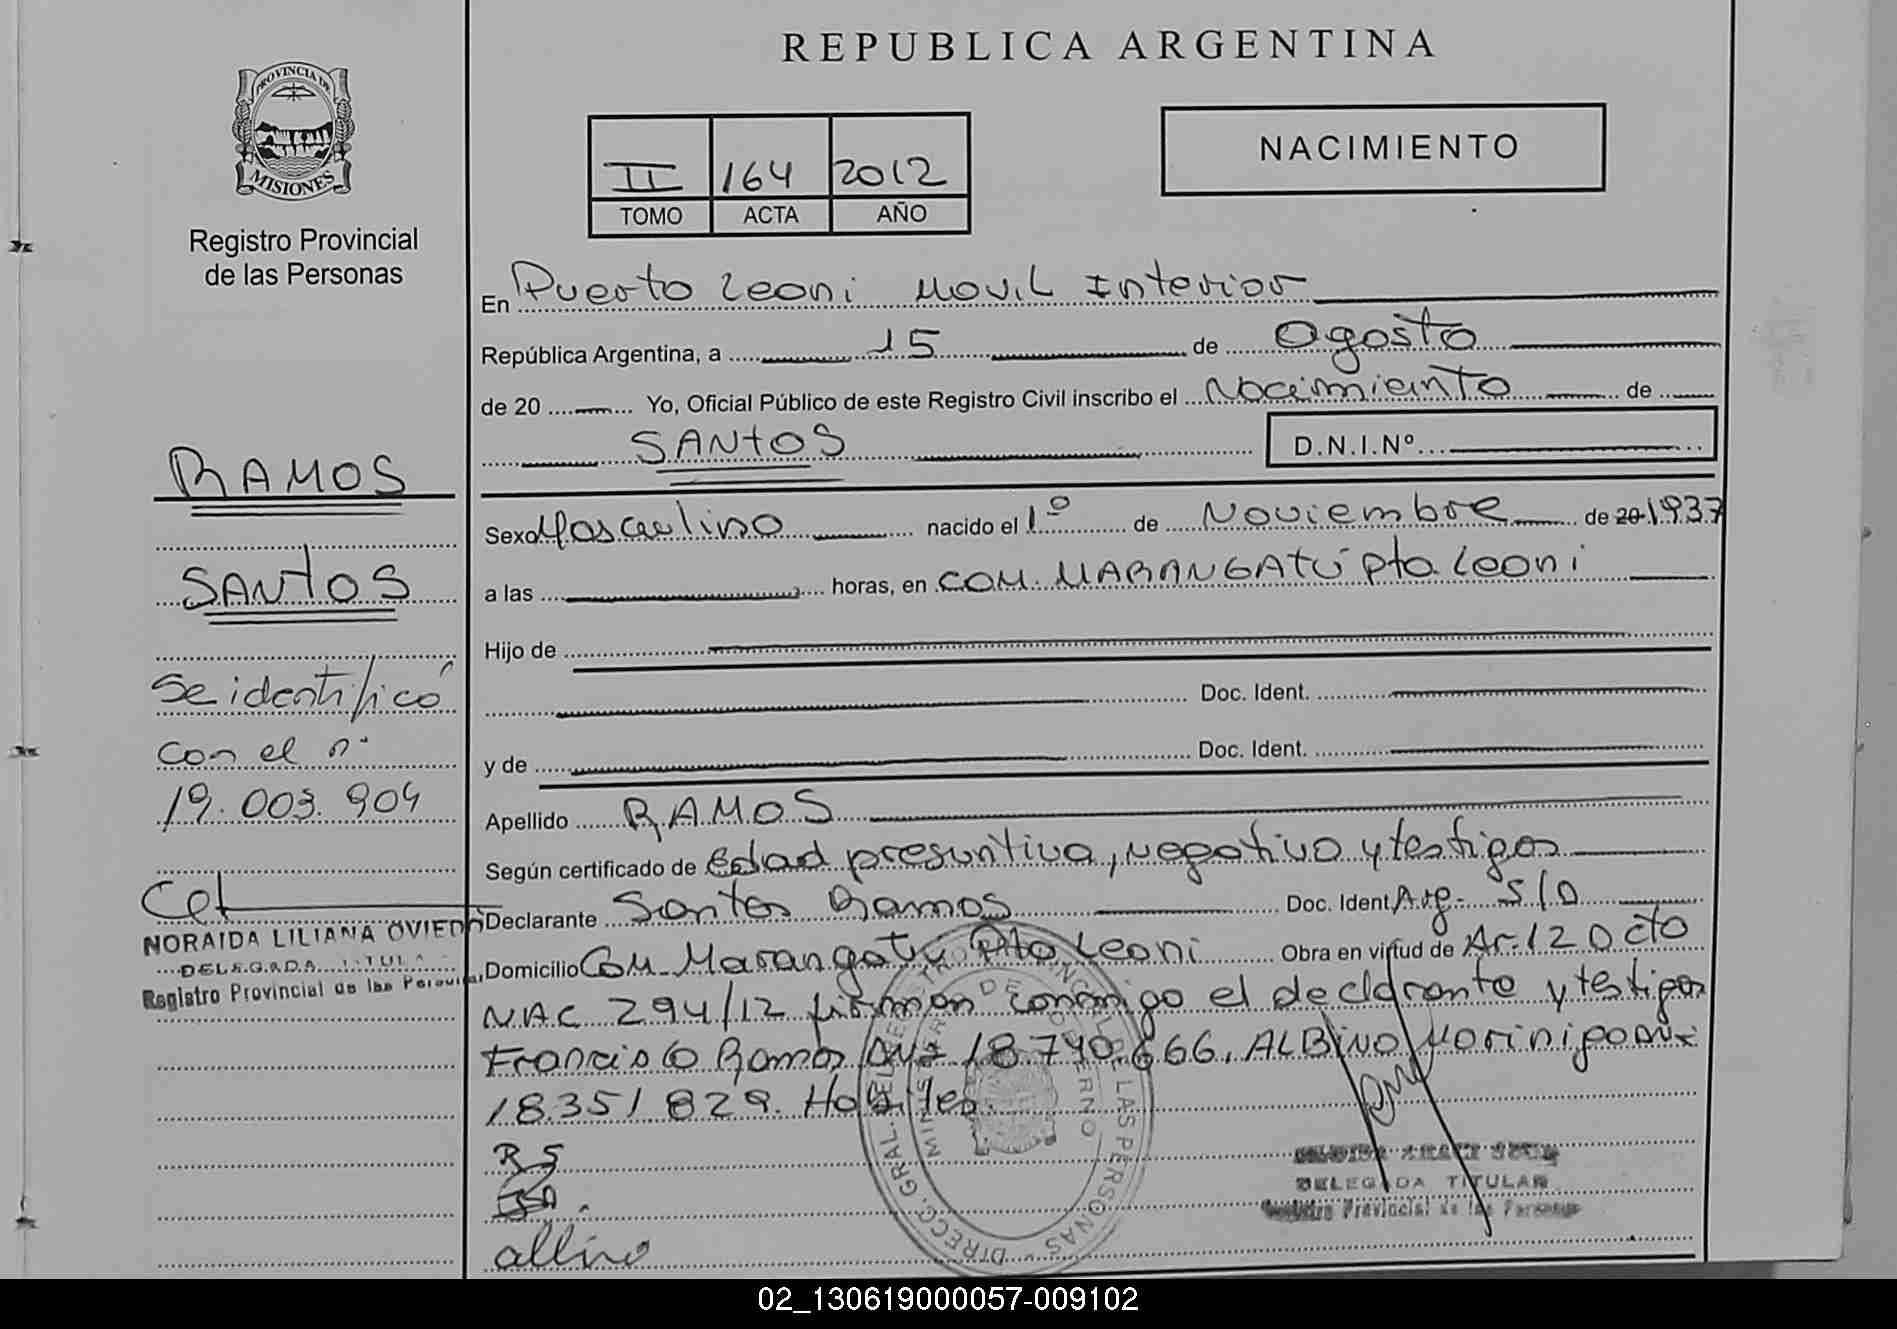 REPUBLICA ARGENTINA
PROVINCIA DE
MISIONES
Registro Provincial
de las Personas
II 164 2012
TOMO ACTA AÑO
NACIMIENTO
En Puerto Leoni Movil Interior
República Argentina, a 15 de Agosto
de 20 Yo, Oficial Público de este Registro Civil inscribo el Nacimiento de
SANTOS
D.N.I.Nº
RAMOS
SANTOS
Se identificó
con el nº
19.003.904
Cet
NORAIDA LILIANA OVIEDO
DELEGADA TITULA
Registro Provincial de las Personas
Sexo Masculino nacido el 1º de Noviembre de 20 1937
a las horas, en COM. MARANGATÚ Pto Leoni
Hijo de
Doc. Ident.
y de Doc. Ident.
Apellido RAMOS
Según certificado de Edad presuntiva, negativo y testigos
Declarante Santos Ramos Doc. Ident Arg. S/D
Domicilio Com Marangatu Pto Leoni Obra en virtud de Ar. 12 Dcto
NAC 294/12 firman conmigo el declarante y testigos
Francisco Ramos DNI 18.740.666, ALBINO Morinigo DNI
18351829. Habiles.
R S
albino
DIRECC. GRAL. DEL REGISTRO PROVINCIAL DE LAS PERSONAS
MINISTERIO DE GOBIERNO
DELEGADA TITULAR
Registro Provincial de las Personas
02_130619000057-009102